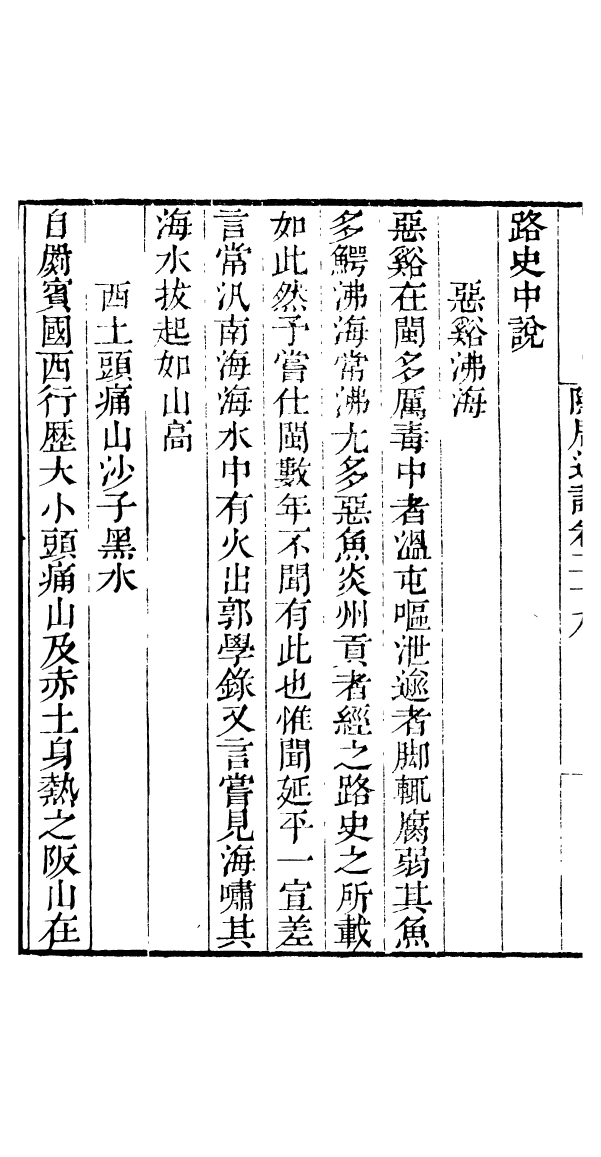 路史中說
惡谿沸海
惡谿在閩多厲毒中者溫屯嘔泄逾者脚輒腐弱其魚
多鰐沸海常沸尤多惡魚炎州貢者經之路史之所載
如此然予嘗仕閩數年不聞有此也惟聞延平一宣差
言常汎南海海水中有火出郭學錄又言嘗見海嘯其
海水拔起如山高
西土頭痛山沙子黑水
自罽賓國西行歷大小頭痛山及赤土身熱之阪山在